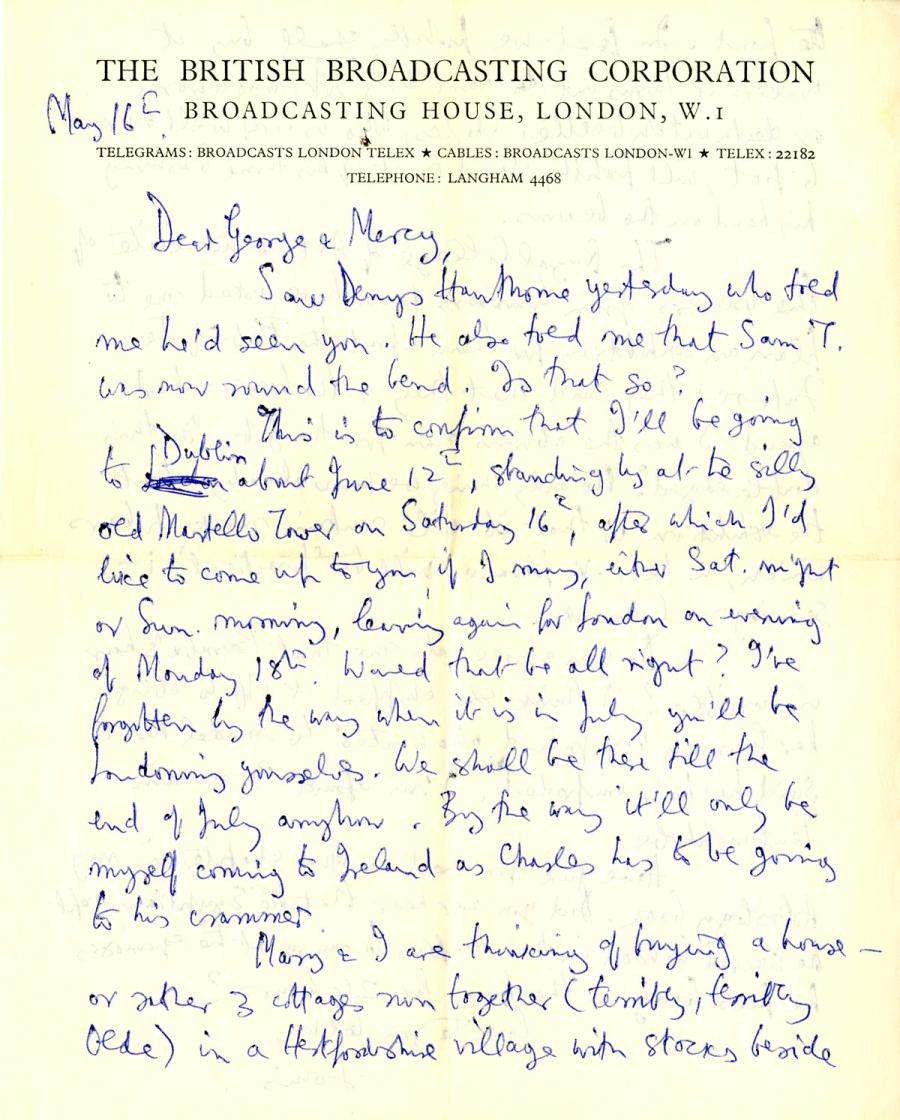 THE BRITISH BROADCASTING CORPORATION
BROADCASTING HOUSE, LONDON, W.1
May 16th.
TELEGRAMS: BROADCASTS LONDON TELEX ★ CABLES: BROADCASTS LONDON-W1 ★ TELEX: 22182
TELEPHONE: LANGHAM 4468
Dear George & Mercy,
Saw Denys Hawthorne yesterday who told
me he'd seen you. He also told me that Sam T.
was now round the bend. Is that so?
This is to confirm that I'll be going
to Dublin about June 12th, standing by at the silly
old Martello Tower on Saturday 16th, after which I'd
like to come up to you, if I may, either Sat. night
or Sun. morning, leaving again for London on evening
of Monday 18th. Would that be all right? I've
forgotten by the way when it is in July you'll be
Londoning yourselves. We shall be there till the
end of July anyhow. By the way it'll only be
myself coming to Ireland as Charles has to be going
to his crammer.
Mary & I are thinking of buying a house —
or rather 3 cottages run together (terribly, terribly
Olde) in a Hertfordshire village with stocks beside